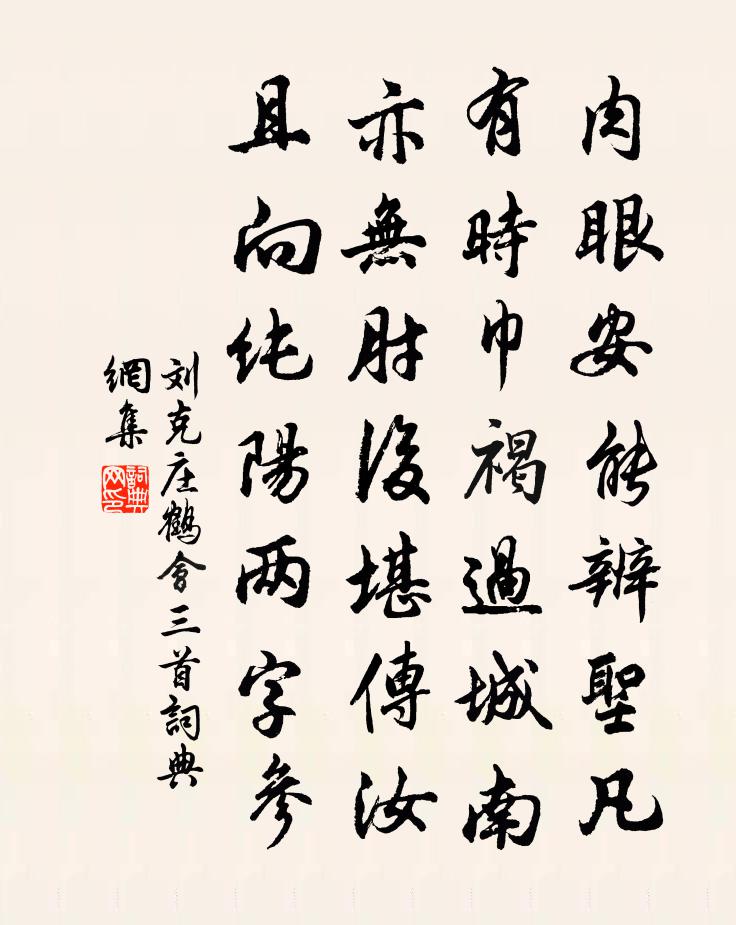 肉眼安能辨聖凡
有時巾褐過城南
亦無肘後堪傳汝
且向纯陽两字參
刘克庄鶴會三首詞典
網集
詞典
网印